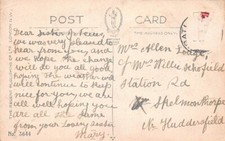 POST CARD
Dear Sister & Niece
we was very pleased to
hear from you and
we hope the change
will do you all good
hoping the weather will
continue to keep
nice for you we are
all well hoping you
are all the same
from your loving sister
Mary
Mrs Allen
c/o Mrs Willie Schofield
Station Rd
Skelmanthorpe
Nr Huddersfield